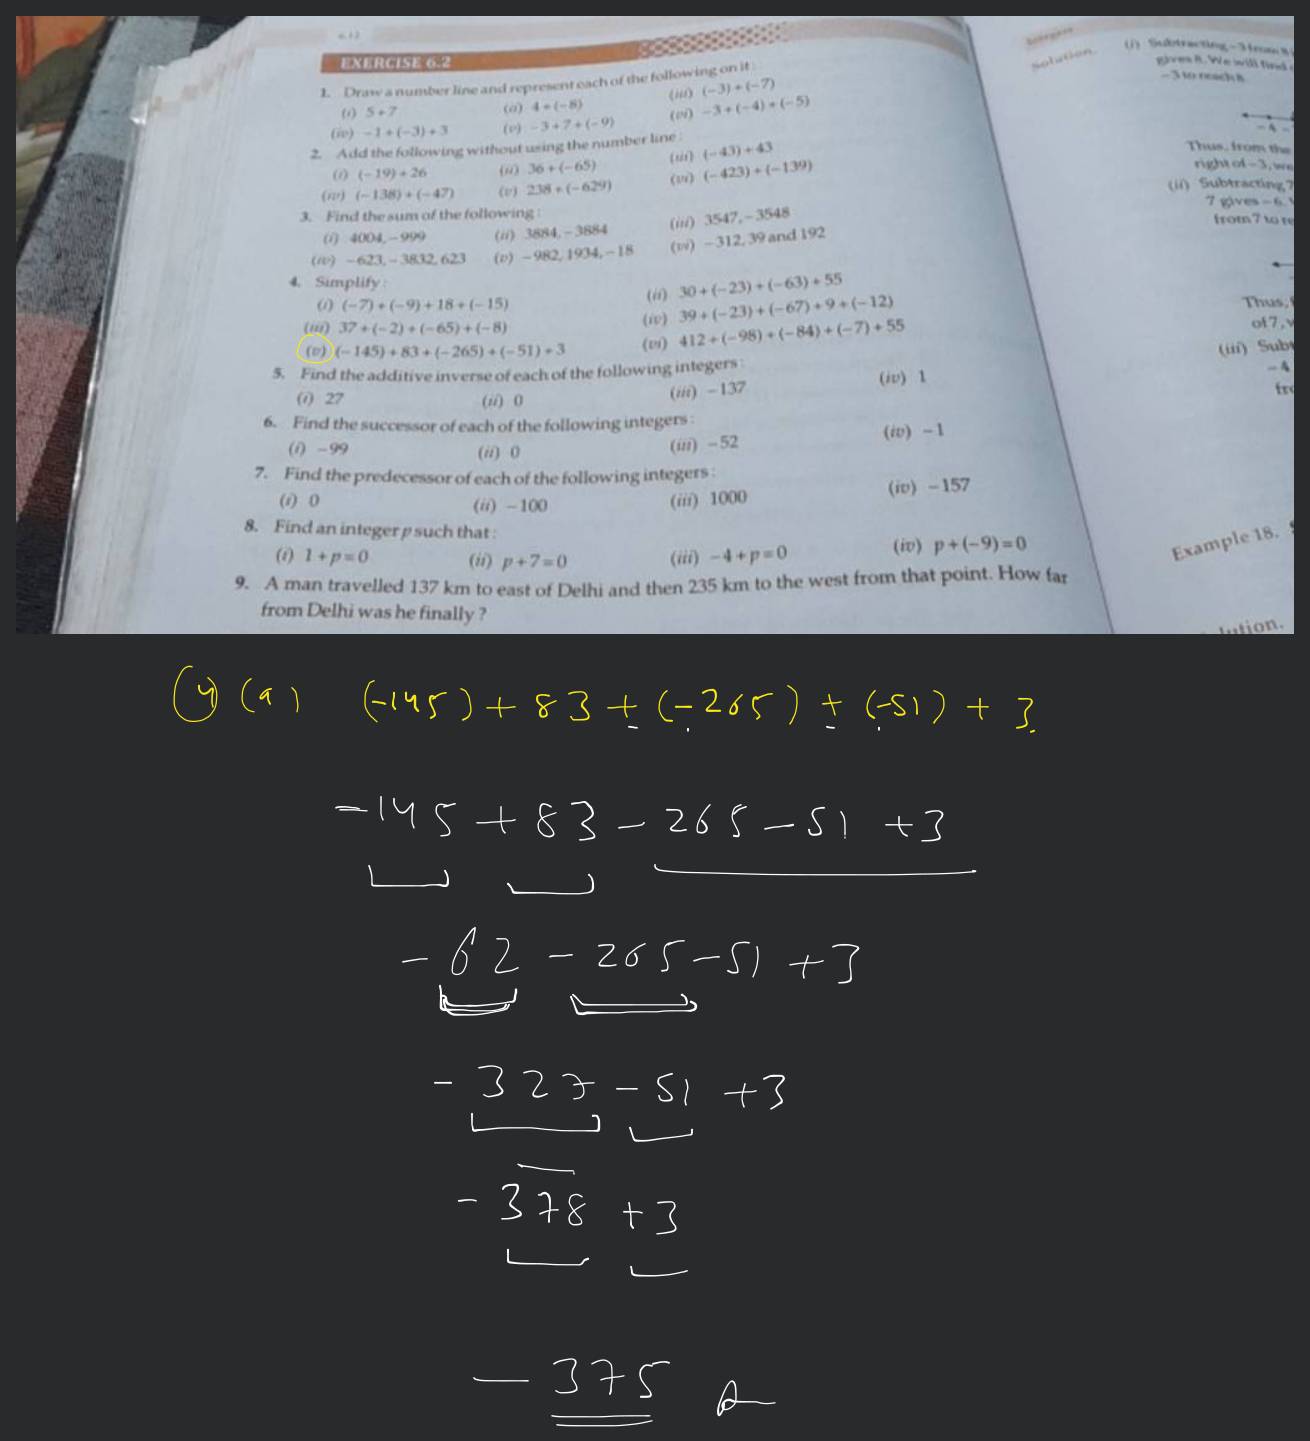 6.12
EXERCISE 6.2
1. Draw a number line and represent each of the following on it :
(i) 5 + 7 (ii) 4 + (– 8) (iii) (– 3) + (– 7)
(iv) – 1 + (– 3) + 3 (v) – 3 + 7 + (– 9) (vi) – 3 + (– 4) + (– 5)
2. Add the following without using the number line :
(i) (– 19) + 26 (ii) 36 + (– 65) (iii) (– 43) + 43
(iv) (– 138) + (– 47) (v) 238 + (– 629) (vi) (– 423) + (– 139)
3. Find the sum of the following :
(i) 4004, – 999 (ii) 3884, – 3884 (iii) 3547, – 3548
(iv) – 623, – 3832, 623 (v) – 982, 1934, – 18 (vi) – 312, 39 and 192
4. Simplify :
(i) (– 7) + (– 9) + 18 + (– 15) (ii) 30 + (– 23) + (– 63) + 55
(iii) 37 + (– 2) + (– 65) + (– 8) (iv) 39 + (– 23) + (– 67) + 9 + (– 12)
(v) (– 145) + 83 + (– 265) + (– 51) + 3 (vi) 412 + (– 98) + (– 84) + (– 7) + 55
5. Find the additive inverse of each of the following integers :
(i) 27 (ii) 0 (iii) – 137 (iv) 1
6. Find the successor of each of the following integers :
(i) – 99 (ii) 0 (iii) – 52 (iv) – 1
7. Find the predecessor of each of the following integers :
(i) 0 (ii) – 100 (iii) 1000 (iv) – 157
8. Find an integer p such that :
(i) 1 + p = 0 (ii) p + 7 = 0 (iii) – 4 + p = 0 (iv) p + (– 9) = 0
9. A man travelled 137 km to east of Delhi and then 235 km to the west from that point. How far
from Delhi was he finally ?
Integers
Solution. (i) Subtracting – 3 from 8
gives 8. We will find
– 3 to reach 8.
– 4
Thus, from the
right of – 3, we
(ii) Subtracting 7
7 gives – 6.
from 7 to re
Thus,
of 7, w
(iii) Subt
– 4
fro
Example 18.
lution.
4 (a) (-145) + 83 + (-265) + (-51) + 3
-145 + 83 - 265 - 51 + 3
- 62 - 265 - 51 + 3
- 327 - 51 + 3
- 378 + 3
- 375